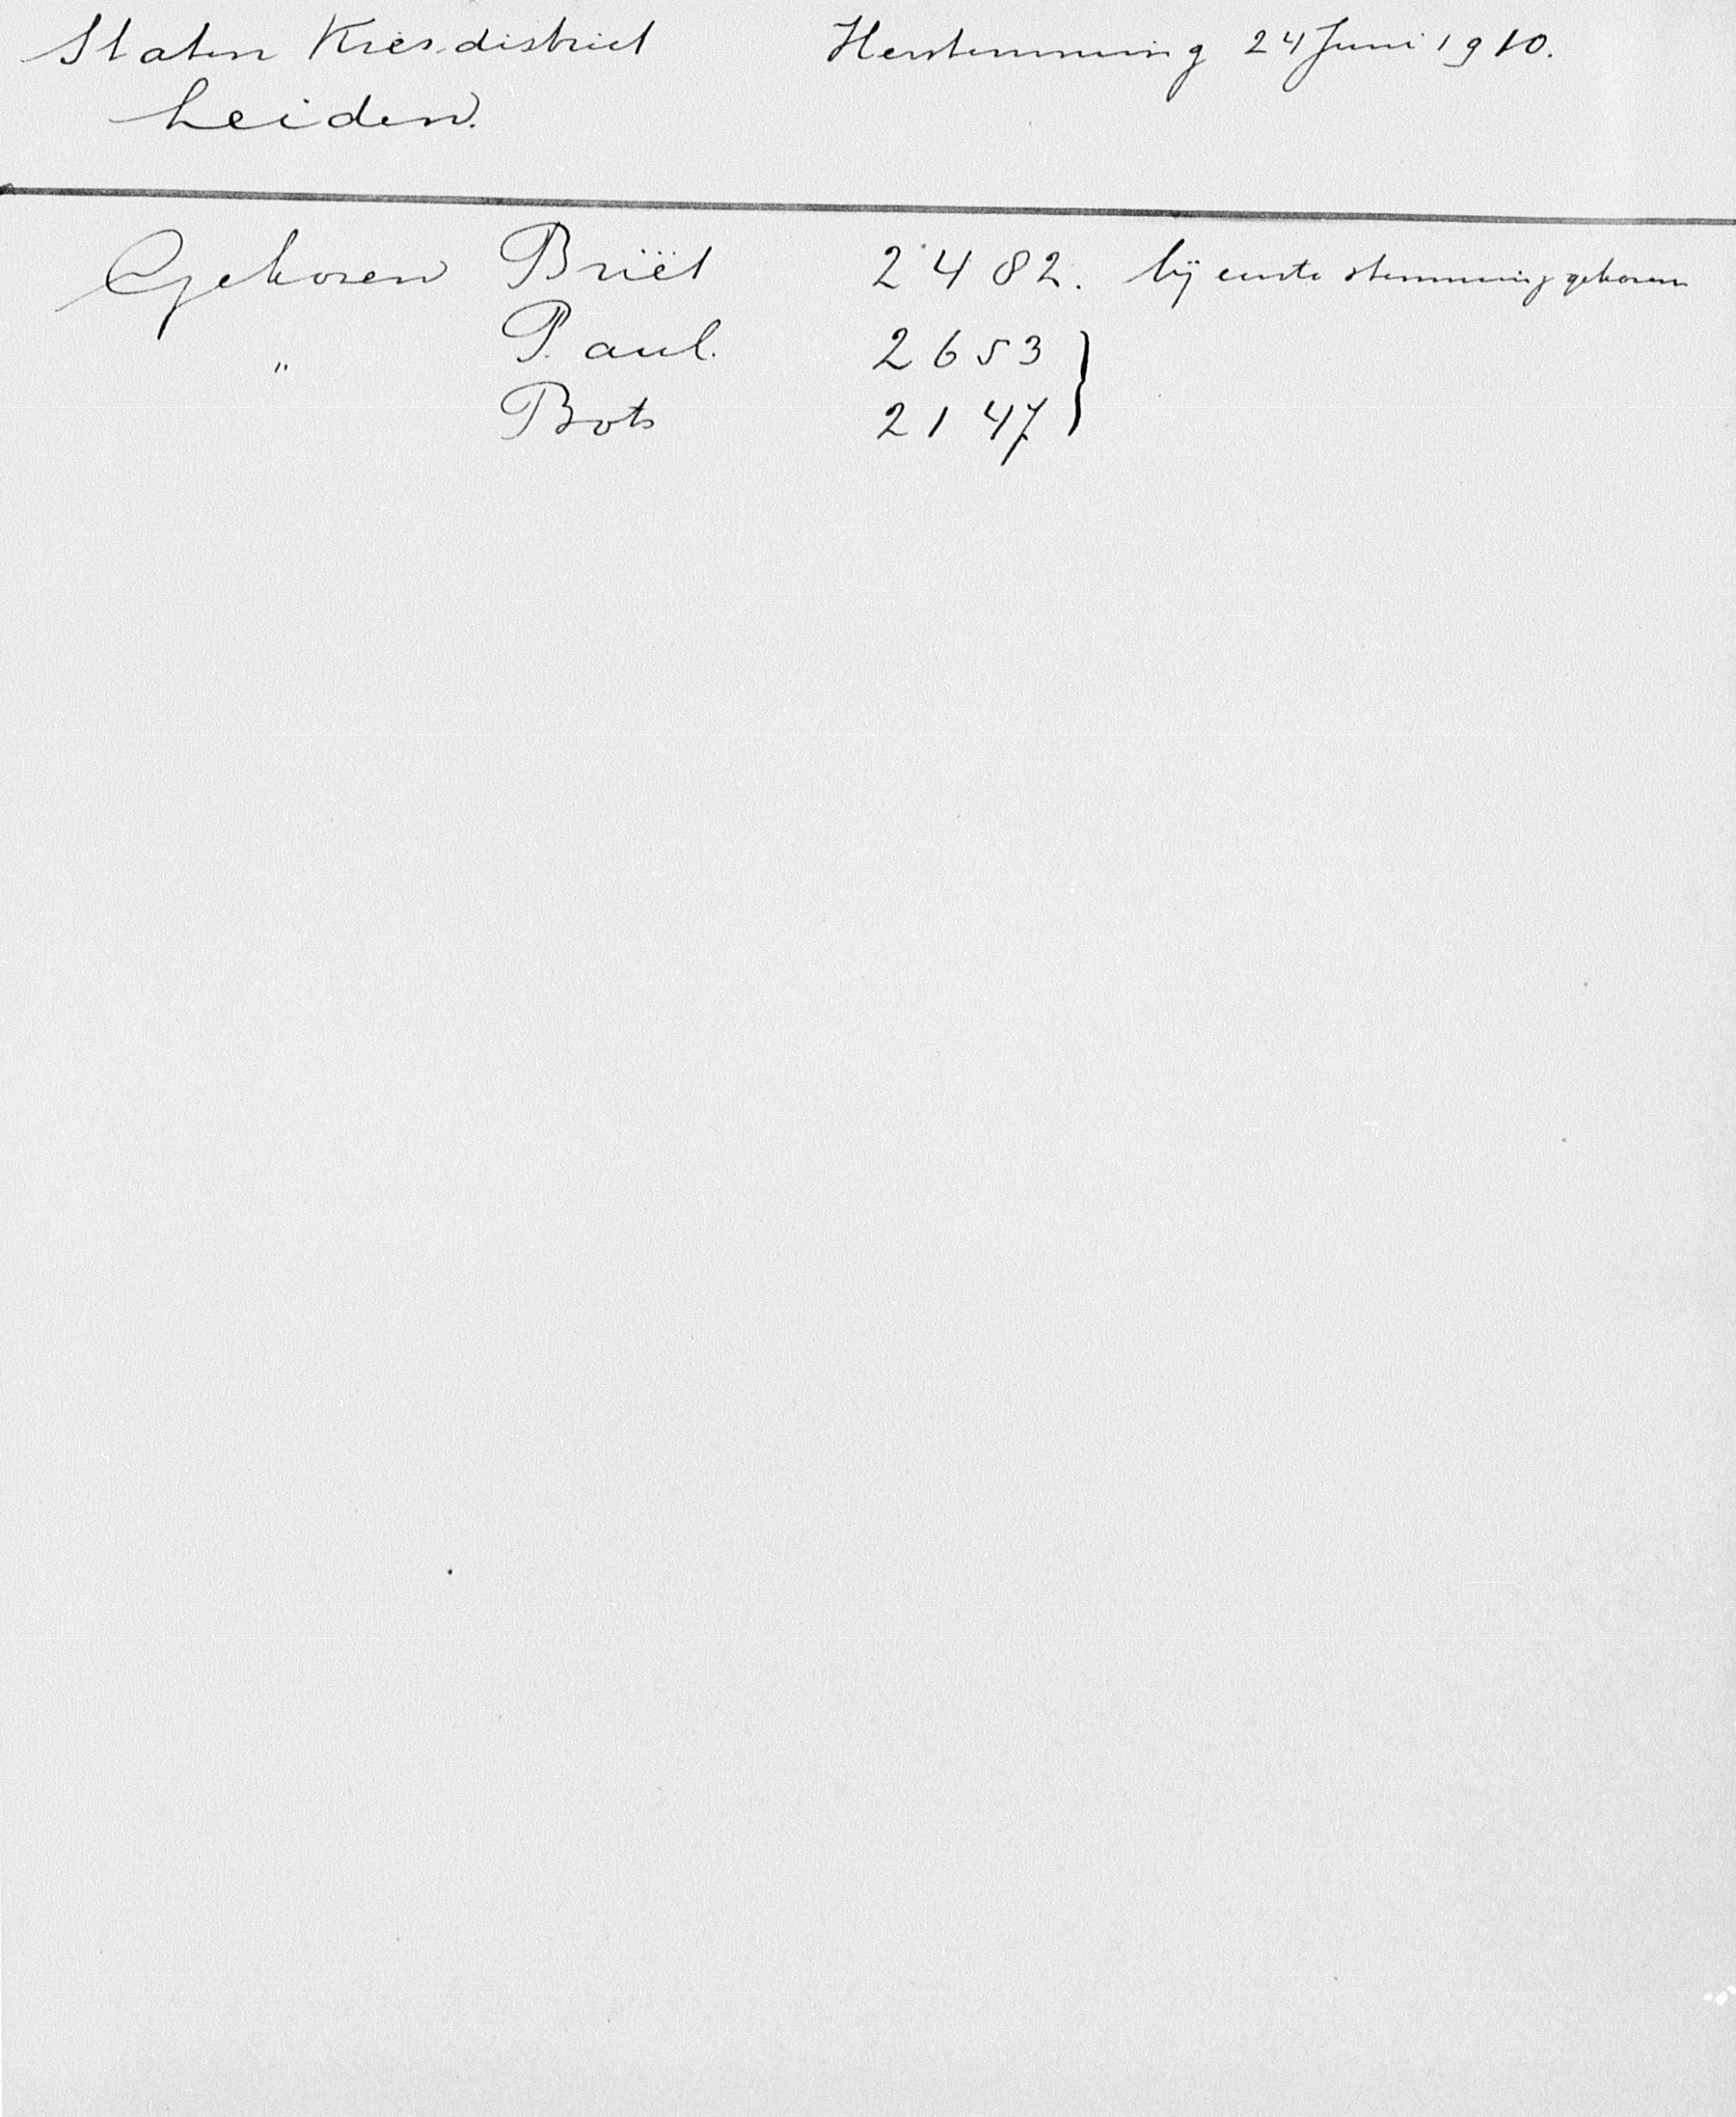 Staten Kiesdistrict Herstemming 24 Juni 1910.
Leiden.
Gekozen Briët 2482. bij eerste stemming gekozen
" Paul. 2653 }
Bots 2147